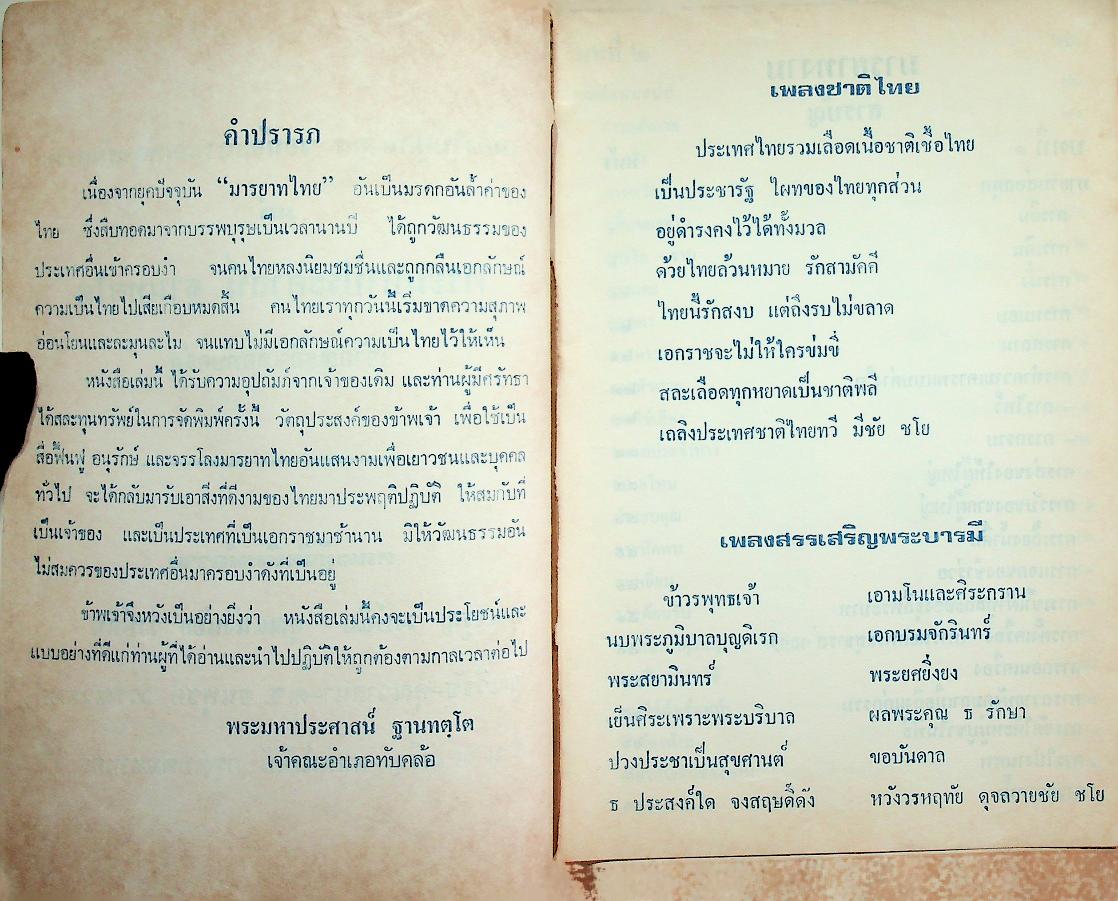 คำปรารภ
เนื่องจากยุคปัจจุบัน “มารยาทไทย” อันเป็นมรดกอันล้ำค่าของ
ไทย ซึ่งสืบทอดมาจากบรรพบุรุษเป็นเวลานานปี ได้ถูกวัฒนธรรมของ
ประเทศอื่นเข้าครอบงำ จนคนไทยหลงนิยมชมชื่นและถูกกลืนเอกลักษณ์
ความเป็นไทยไปเสียเกือบหมดสิ้น คนไทยเราทุกวันนี้เริ่มขาดความสุภาพ
อ่อนโยนและละมุนละไม จนแทบไม่มีเอกลักษณ์ความเป็นไทยไว้ให้เห็น
หนังสือเล่มนี้ ได้รับความอุปถัมภ์จากเจ้าของเดิม และท่านผู้มีศรัทธา
ได้สละทุนทรัพย์ในการจัดพิมพ์ครั้งนี้ วัตถุประสงค์ของข้าพเจ้า เพื่อใช้เป็น
สื่อฟื้นฟู อนุรักษ์ และจรรโลงมารยาทไทยอันแสนงามเพื่อเยาวชนและบุคคล
ทั่วไป จะได้กลับมารับเอาสิ่งที่ดีงามของไทยมาประพฤติปฏิบัติ ให้สมกับที่
เป็นเจ้าของ และเป็นประเทศที่เป็นเอกราชมาช้านาน มิให้วัฒนธรรมอัน
ไม่สมควรของประเทศอื่นมาครอบงำดังที่เป็นอยู่
ข้าพเจ้าจึงหวังเป็นอย่างยิ่งว่า หนังสือเล่มนี้คงจะเป็นประโยชน์และ
แบบอย่างที่ดีแก่ท่านผู้ที่ได้อ่านและนำไปปฏิบัติให้ถูกต้องตามกาลเวลาต่อไป
พระมหาประศาสน์ ฐานทตฺโต
เจ้าคณะอำเภอทับคล้อ
เพลงชาติไทย
ประเทศไทยรวมเลือดเนื้อชาติเชื้อไทย
เป็นประชารัฐ ไผทของไทยทุกส่วน
อยู่ดำรงคงไว้ได้ทั้งมวล
ด้วยไทยล้วนหมาย รักสามัคคี
ไทยนี้รักสงบ แต่ถึงรบไม่ขลาด
เอกราชจะไม่ให้ใครข่มขี่
สละเลือดทุกหยาดเป็นชาติพลี
เถลิงประเทศชาติไทยทวี มีชัย ชโย
เพลงสรรเสริญพระบารมี
ข้าวรพุทธเจ้า เอามโนและศิระกราน
นบพระภูมิบาลบุญดิเรก เอกบรมจักรินทร์
พระสยามินทร์ พระยศยิ่งยง
เย็นศิระเพราะพระบริบาล ผลพระคุณ ธ รักษา
ปวงประชาเป็นสุขศานต์ ขอบันดาล
ธ ประสงค์ใด จงสฤษดิ์ดัง หวังวรหฤทัย ดุจถวายชัย ชโย